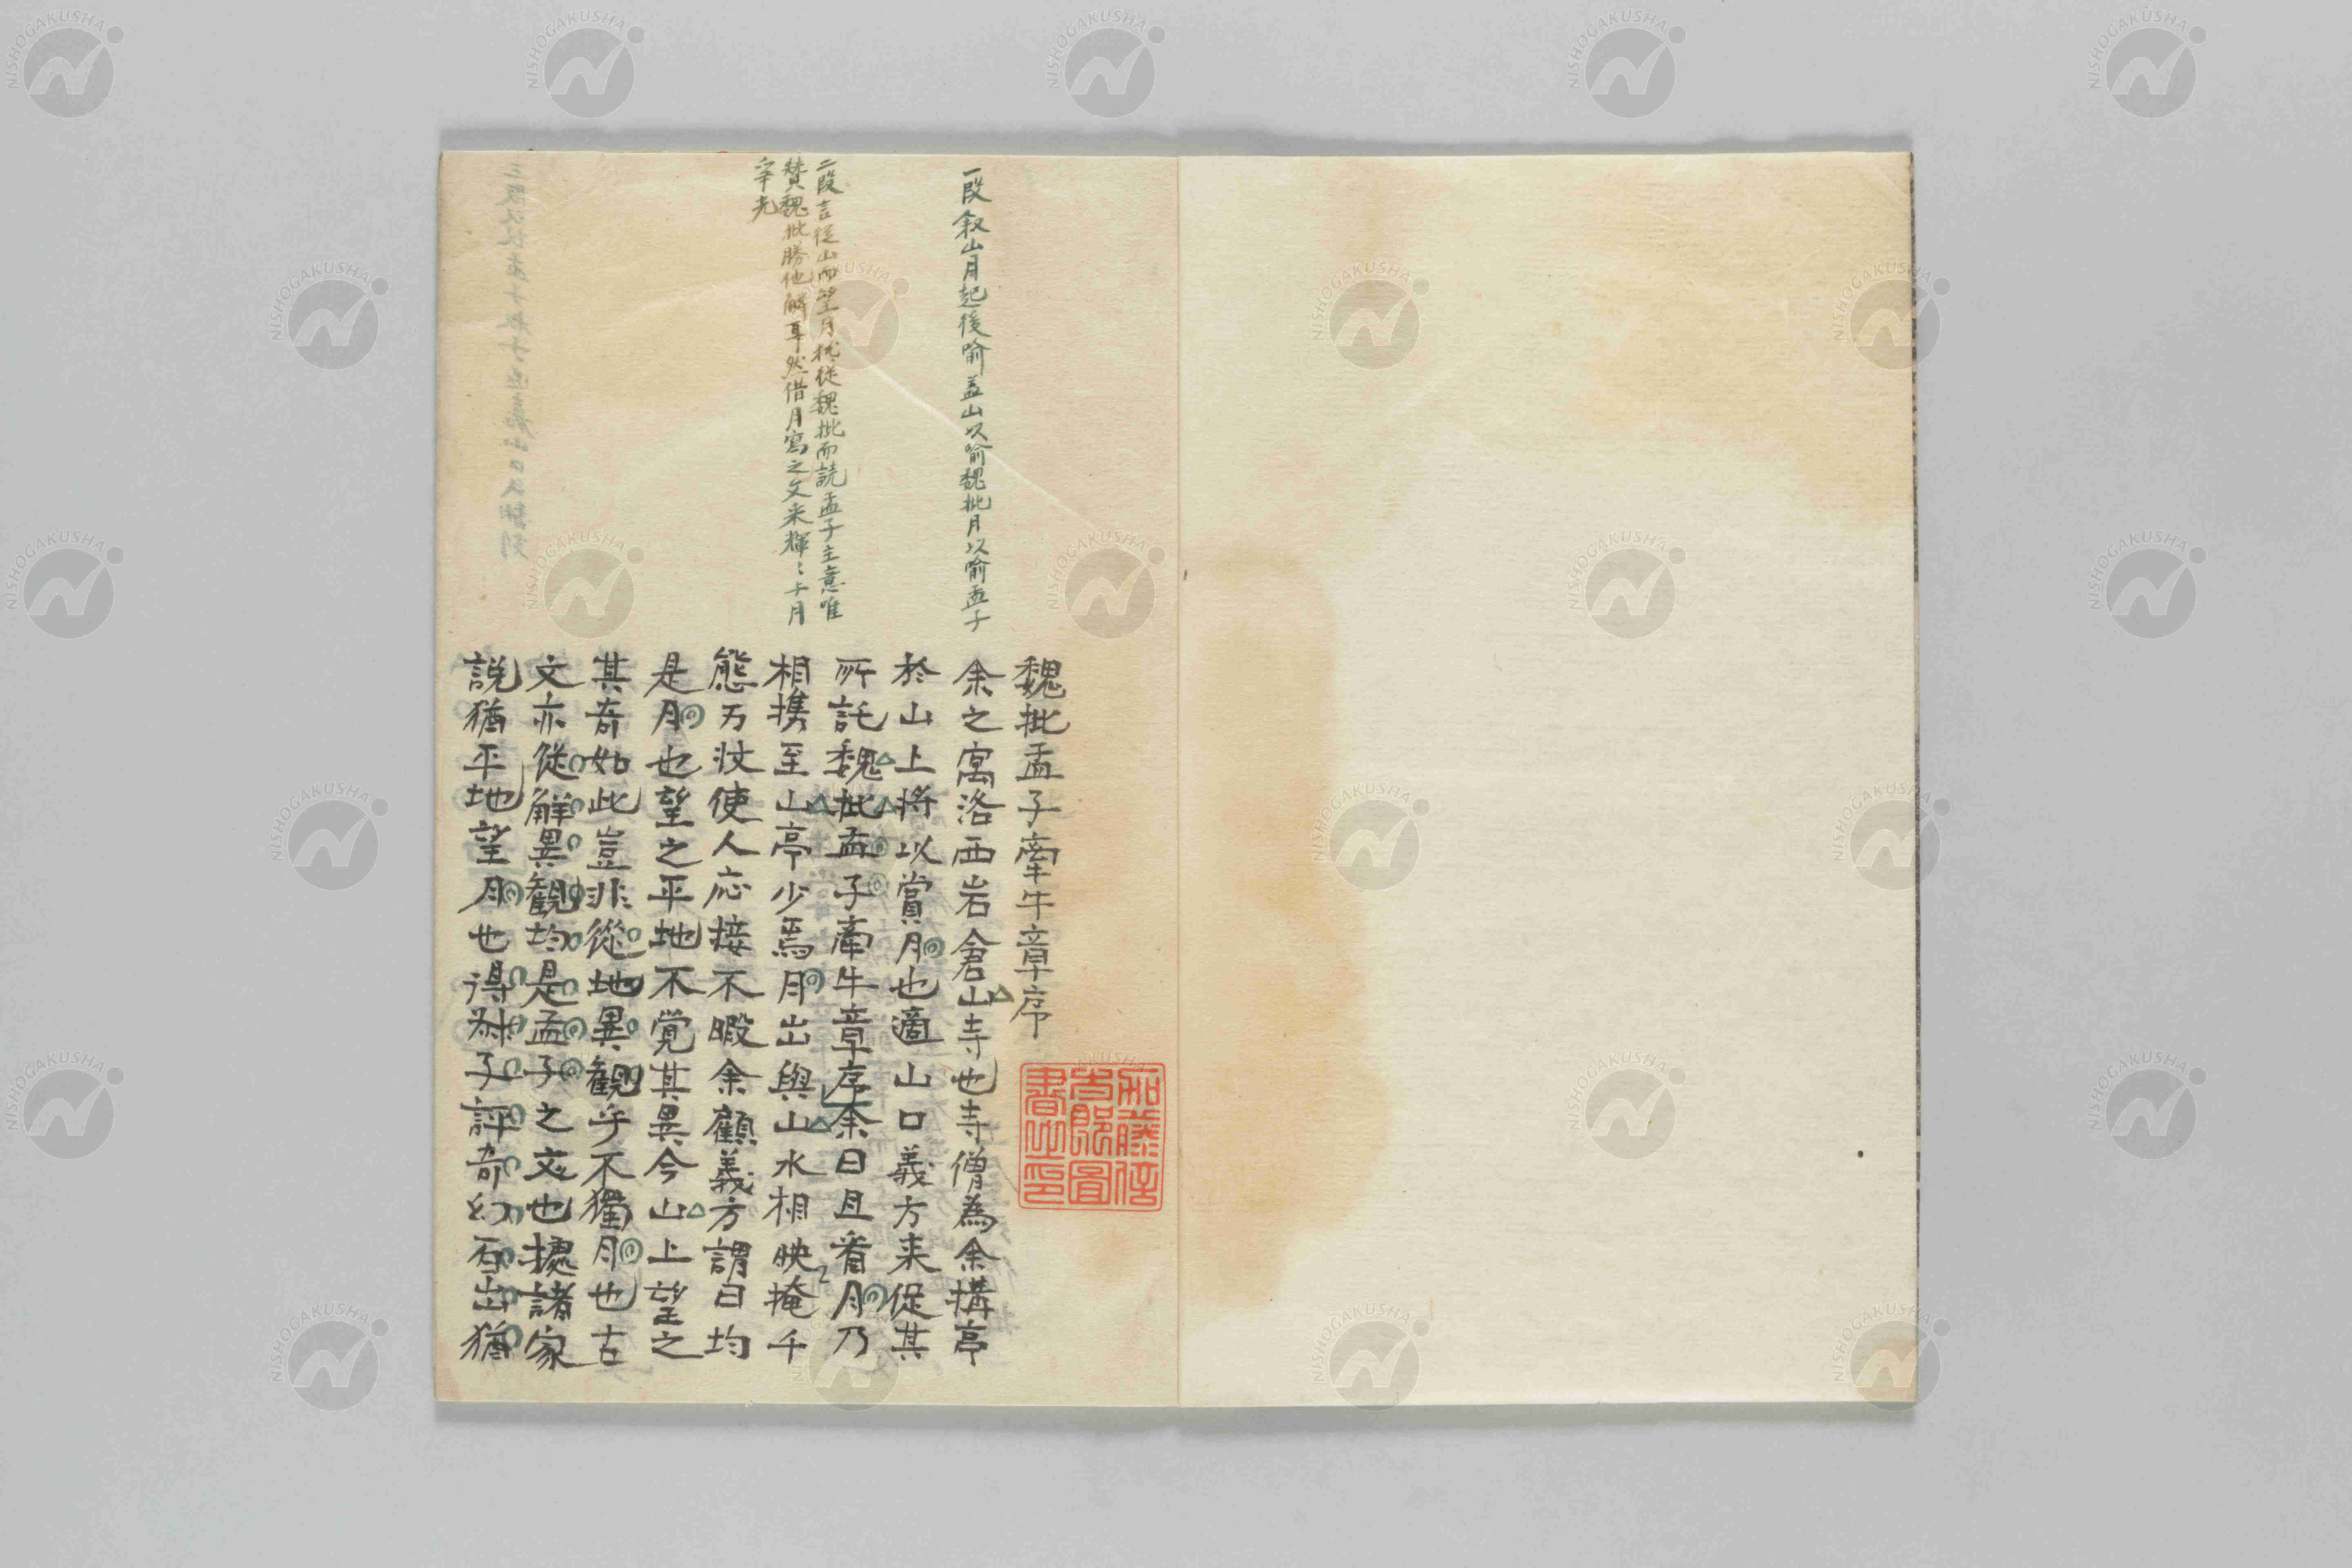 魏批孟子牽牛章序
余之寓洛西岩倉山寺也寺僧為余構亭
於山上將以賞月也適山口義方来促其
所託魏批孟子牽牛章序余曰且看月乃
相携至山亭少焉月出與山水相映掩千
態万状使人応接不暇余顧義方謂曰均
是月也望之平地不覚其異今山上望之
其奇如此豈非從地異観乎不獨月也古
文亦從解異観均是孟子之文也攄諸家
説猶平地望月也得叔子評奇幻百出猶
一段叙山月起後喻蓋山以喻魏批月以喻孟子
二段言從山而望月猶從魏批而読孟子主意唯
賛魏批勝他解耳然借月寫之文采輝〻与月
争光
加藤信
太郎圖
書之印
NISHOGAKUSHA